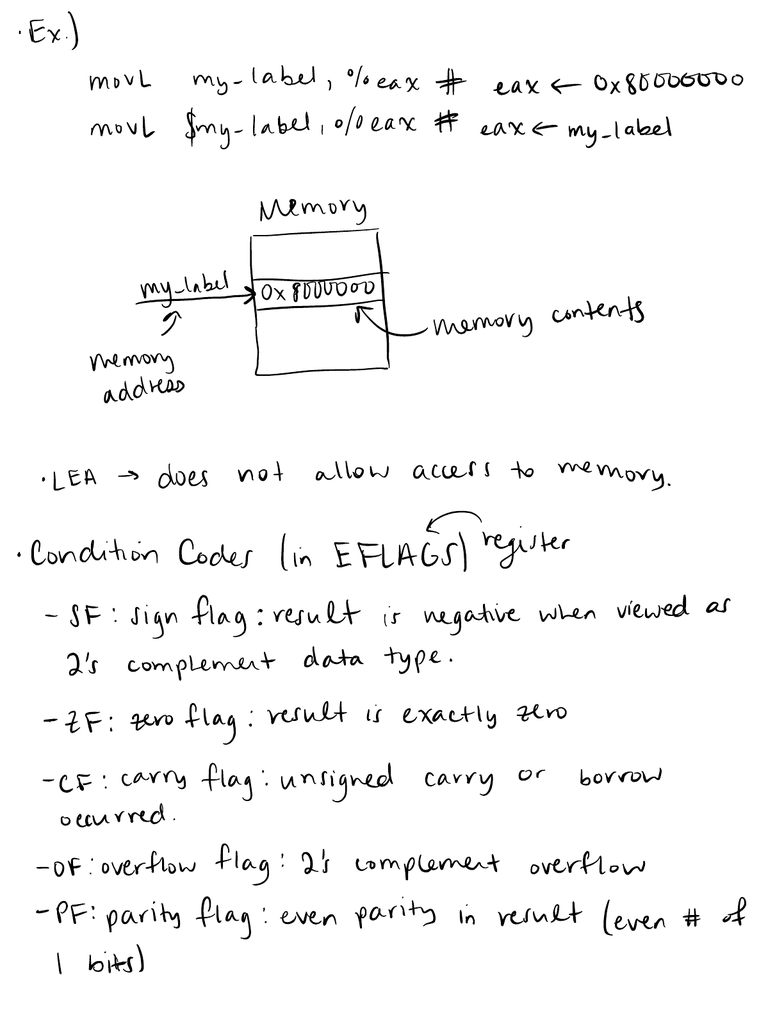 ·Ex.)
movL my-label, %eax # eax ← 0x80000000
movL $my-label, %eax # eax ← my_label
Memory
my_label
0x8000000
memory contents
memory
address
·LEA → does not allow access to memory.
·Condition Codes (in EFLAGS) register
- SF: sign flag: result is negative when viewed as
2's complement data type.
- ZF: zero flag: result is exactly zero
- CF: carry flag: unsigned carry or borrow
occurred.
- OF: overflow flag: 2's complement overflow
- PF: parity flag: even parity in result (even # of
1 bits)